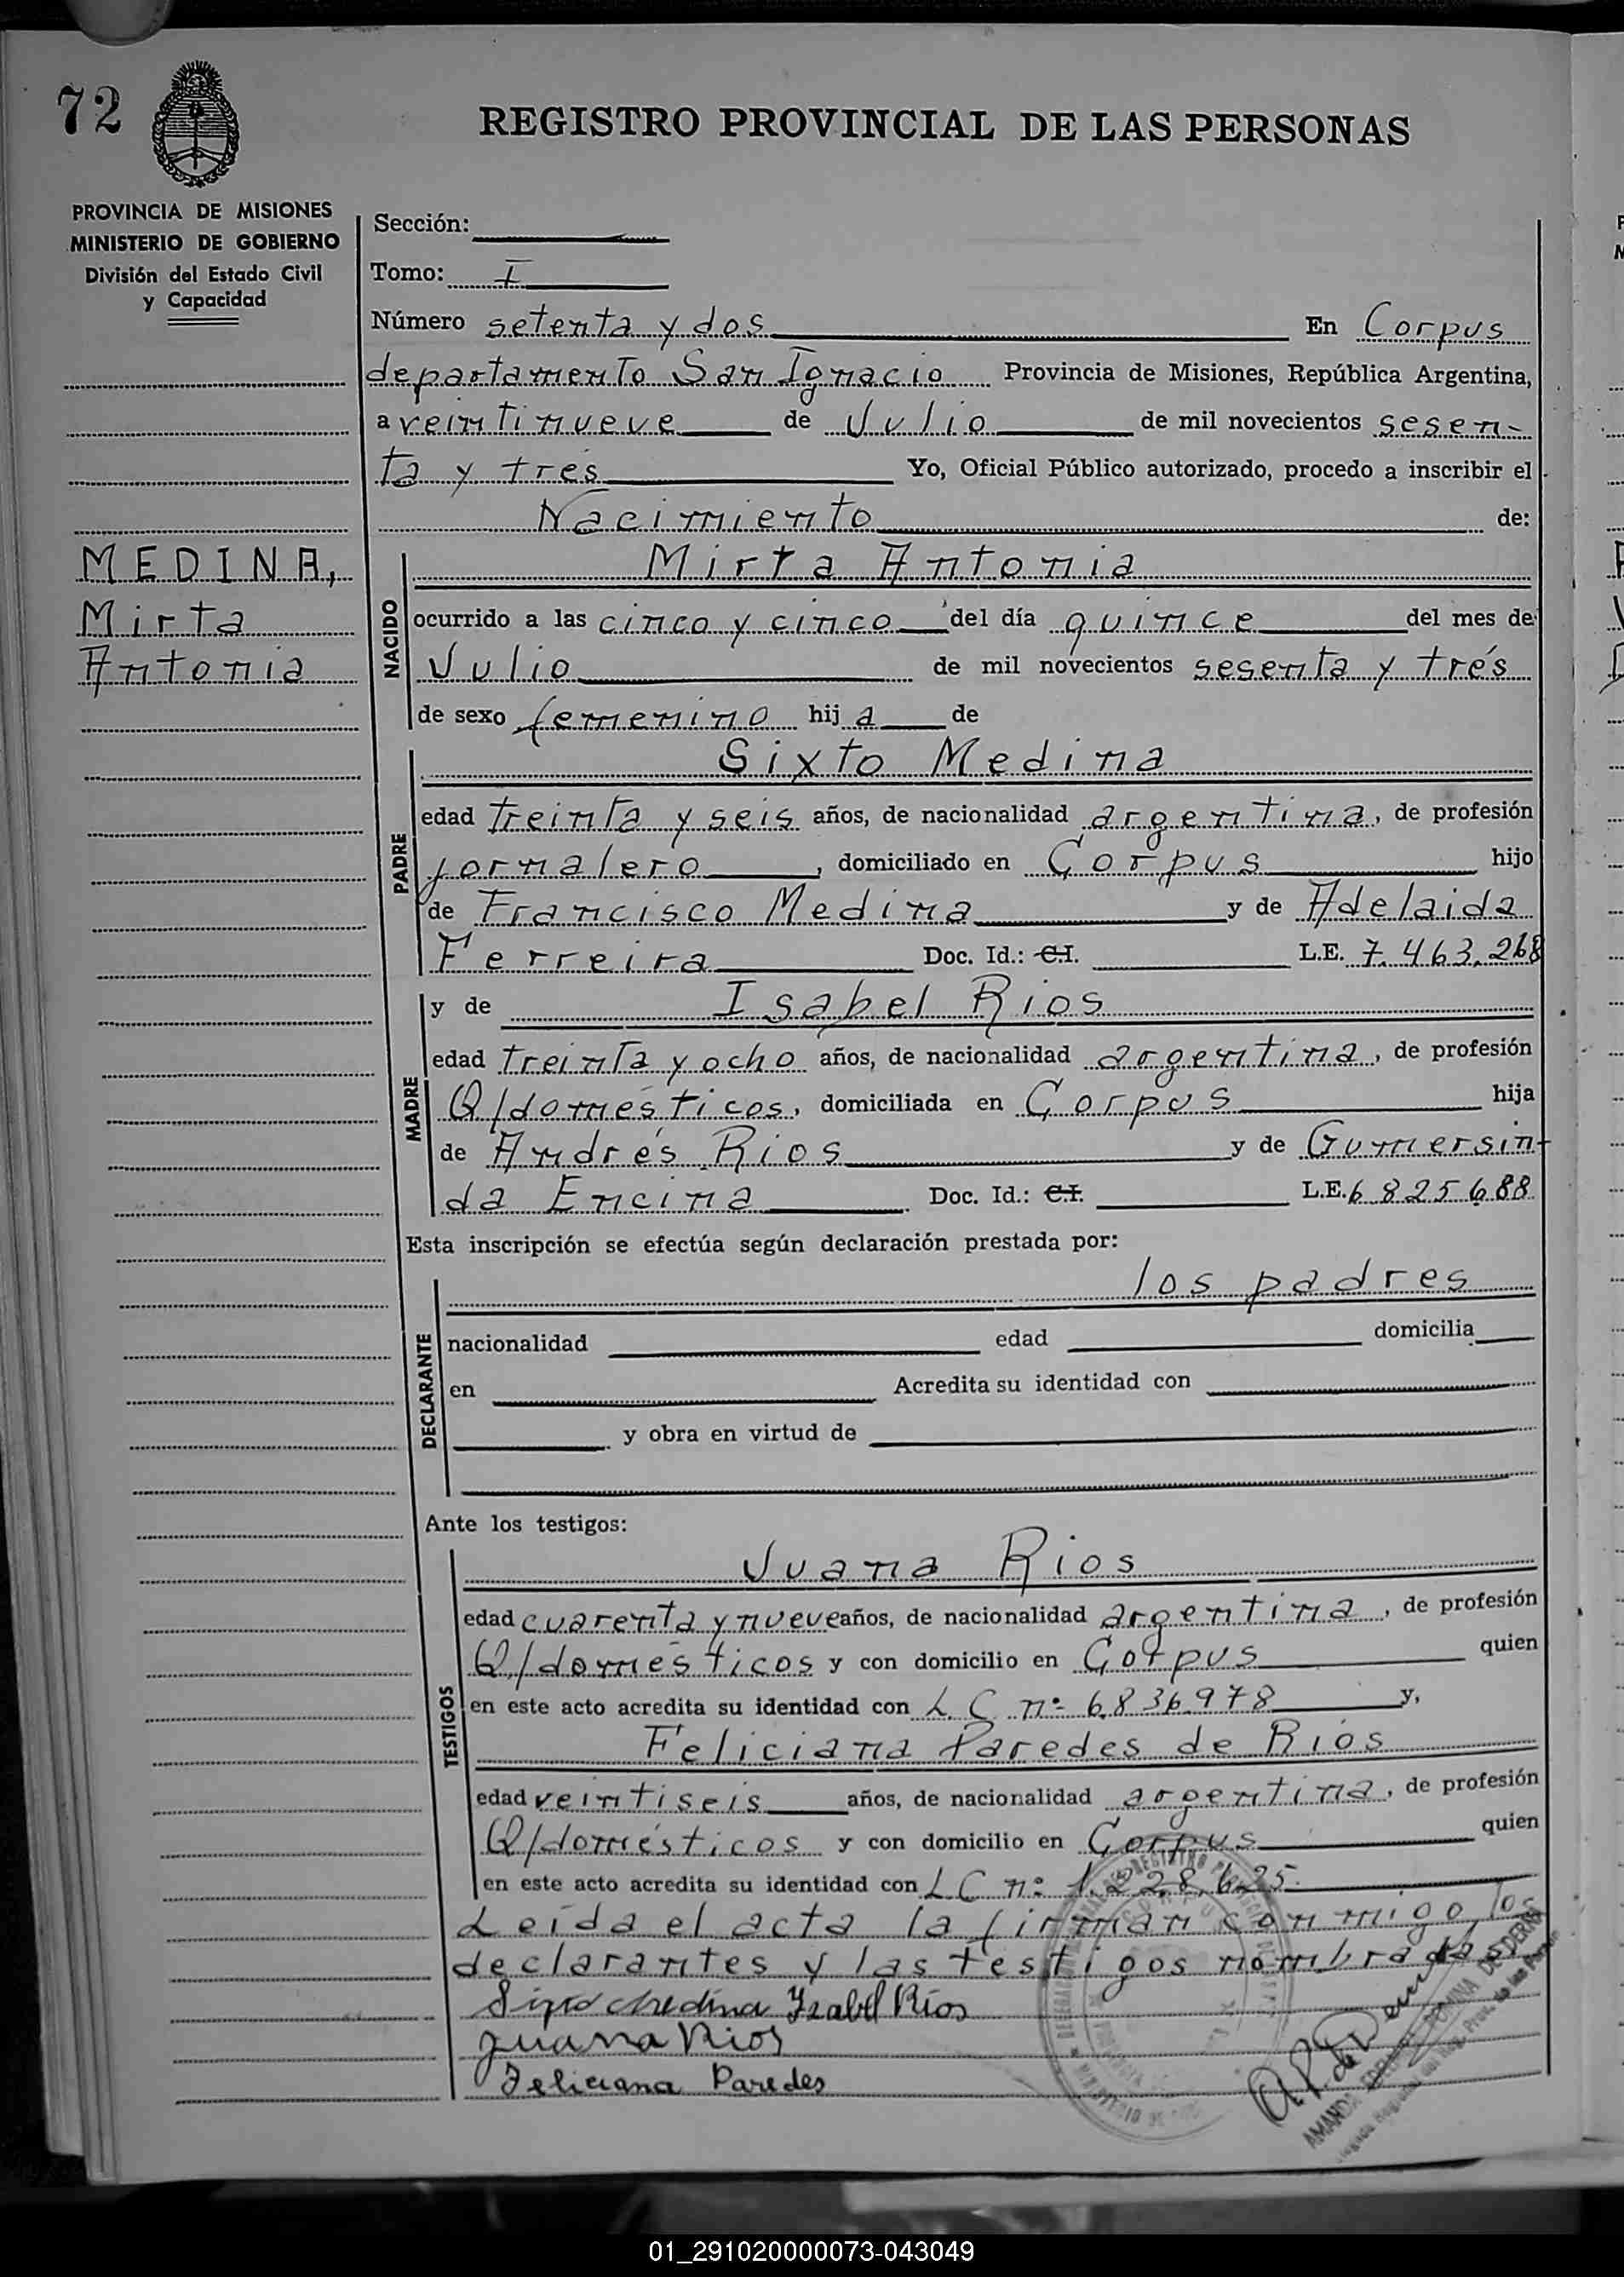 72
REGISTRO PROVINCIAL DE LAS PERSONAS
PROVINCIA DE MISIONES
MINISTERIO DE GOBIERNO
División del Estado Civil
y Capacidad
Sección:
Tomo: I
Número setenta y dos En Corpus
departamento San Ignacio Provincia de Misiones, República Argentina,
a veintinueve de Julio de mil novecientos sesen-
ta y tres Yo, Oficial Público autorizado, procedo a inscribir el
Nacimiento de:
MEDINA,
Mirta
Antonia
NACIDO
Mirta Antonia
ocurrido a las cinco y cinco del día quince del mes de
Julio de mil novecientos sesenta y trés
de sexo femenino hij a de
PADRE
Sixto Medina
edad treinta y seis años, de nacionalidad argentina, de profesión
jornalero, domiciliado en Corpus hijo
de Francisco Medina y de Adelaida
Ferreira Doc. Id.: C.I. L.E. 7.463.268
MADRE
y de Isabel Rios
edad treinta y ocho años, de nacionalidad argentina, de profesión
Q/domésticos, domiciliada en Corpus hija
de Andrés Rios y de Gumersin-
da Encina Doc. Id.: C.I. L.E. 6825688
Esta inscripción se efectúa según declaración prestada por:
DECLARANTE
los padres
nacionalidad edad domicilia
en Acredita su identidad con
y obra en virtud de
Ante los testigos:
TESTIGOS
Juana Rios
edad cuarenta y nueve años, de nacionalidad argentina, de profesión
Q/domésticos y con domicilio en Corpus quien
en este acto acredita su identidad con L.C. nº 6.836.978 y,
Feliciana Paredes de Rios
edad veintiseis años, de nacionalidad argentina, de profesión
Q/domésticos y con domicilio en Corpus quien
en este acto acredita su identidad con LC nº 1.228.625
Leída el acta la firman conmigo los
declarantes y las testigos nombradas.
Sixto Medina Yzabel Rios
Juana Rios
Feliciana Paredes
01_291020000073-043049